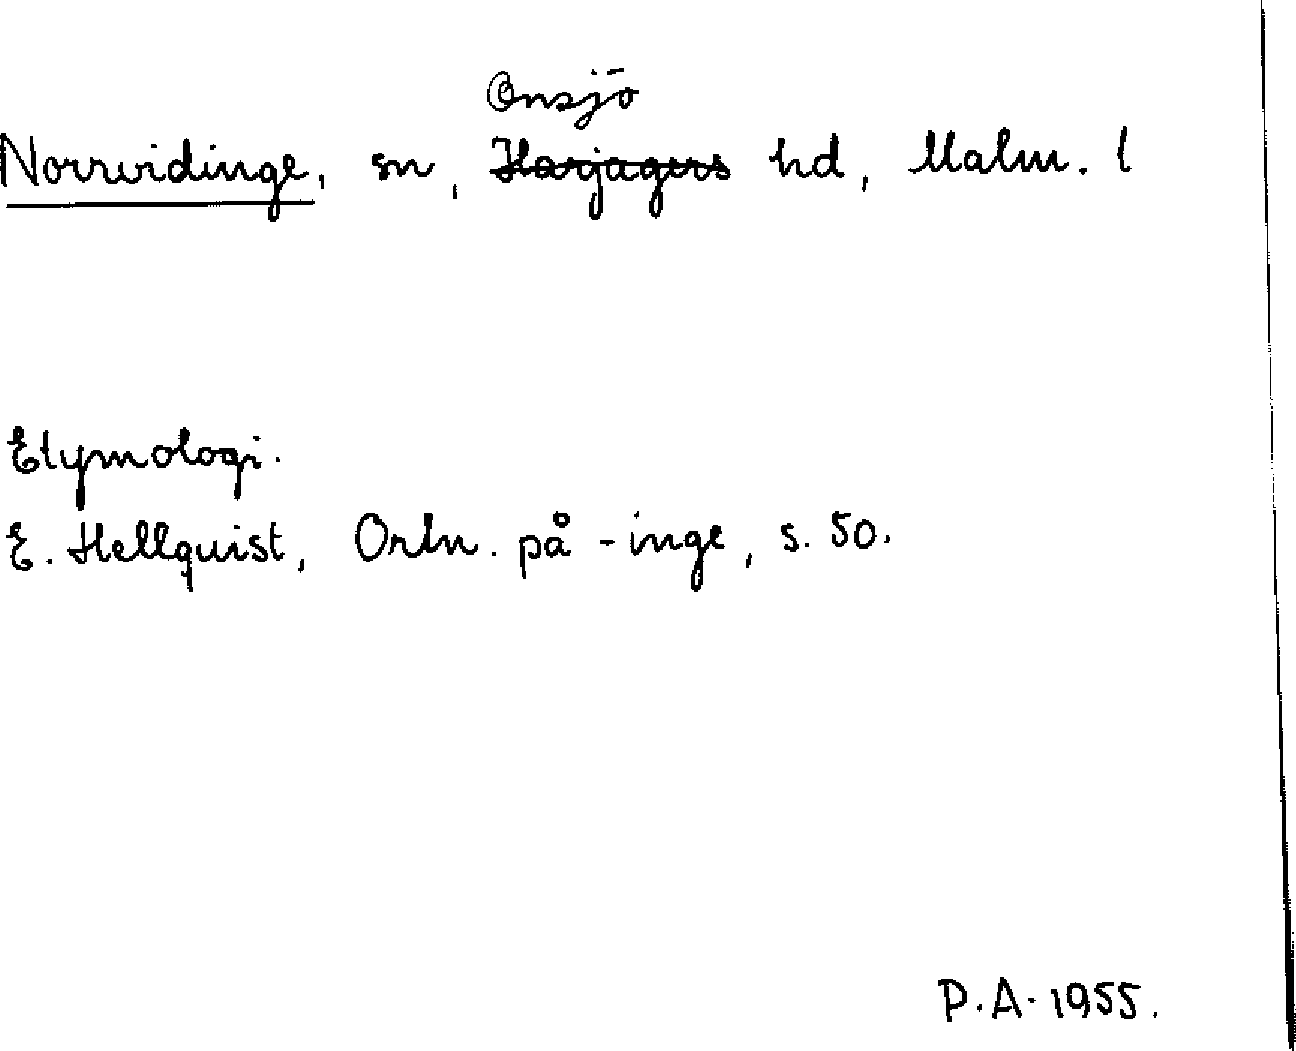 Onsjö
Norrvidinge, sn, Harjagers hd, Malm. l
Etymologi.
E. Hellquist, Ortn. på -inge, s. 50.
P.A. 1955.